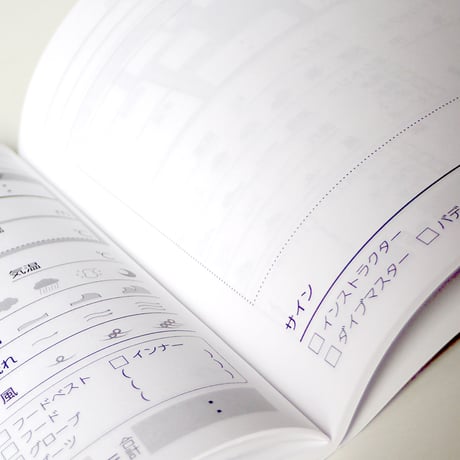 気温
℃
れ
風
インナー
フードベスト
フード
グローブ
サイン
インストラクター
ダイブマスター
バデ